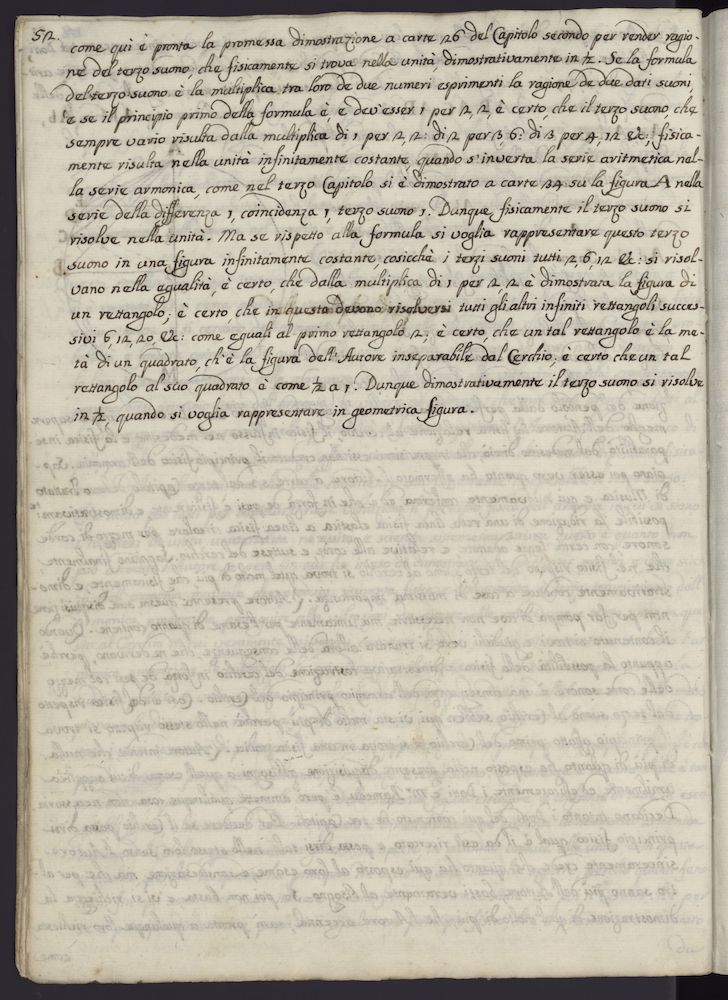 512.
come qui è pronta la promessa dimostrazione a carte 26 del Capitolo secondo per render ragio-
ne del terzo suono, che fisicamente si trova nella unità, dimostrativamente in ½. Se la formula
del terzo suono è la multiplica tra loro de due numeri esprimenti la ragione de due dati suoni,
e se il principio primo della formula è, e dev'esser 1 per 2, 2, è certo, che il terzo suono, che
sempre vario risulta dalla multiplica di 1 per 2, 2: di 2 per 3, 6: di 3 per 4, 12 &c:, fisica-
mente risulta nella unità infinitamente costante, quando s'inverta la serie aritmetica nel-
la serie armonica, come nel terzo Capitolo si è dimostrato a carte 34 su la figura A nella
serie della differenza 1, coincidenza 1, terzo suono 1. Dunque fisicamente il terzo suono si
risolve nella unità. Ma se rispetto alla formula si voglia rappresentare questo terzo
suono in una figura infinitamente costante, cosicchè i terzi suoni tutti 2, 6, 12 &c: si risol-
vano nella egualità, è certo, che dalla multiplica di 1 per 2, 2 è dimostrata la figura di
un rettangolo; è certo che in questa devono risolversi tutti gli altri infiniti rettangoli succes-
sivi 6, 12, 20, &c: come eguali al primo rettangolo 2; è certo, che un tal rettangolo è la me-
tà di un quadrato, ch'è la figura dell'Autore inseparabile dal Cerchio; è certo che un tal
rettangolo al suo quadrato è come ½ a 1. Dunque dimostrativamente il terzo suono si risolve
in ½, quando si voglia rappresentare in geometrica figura.